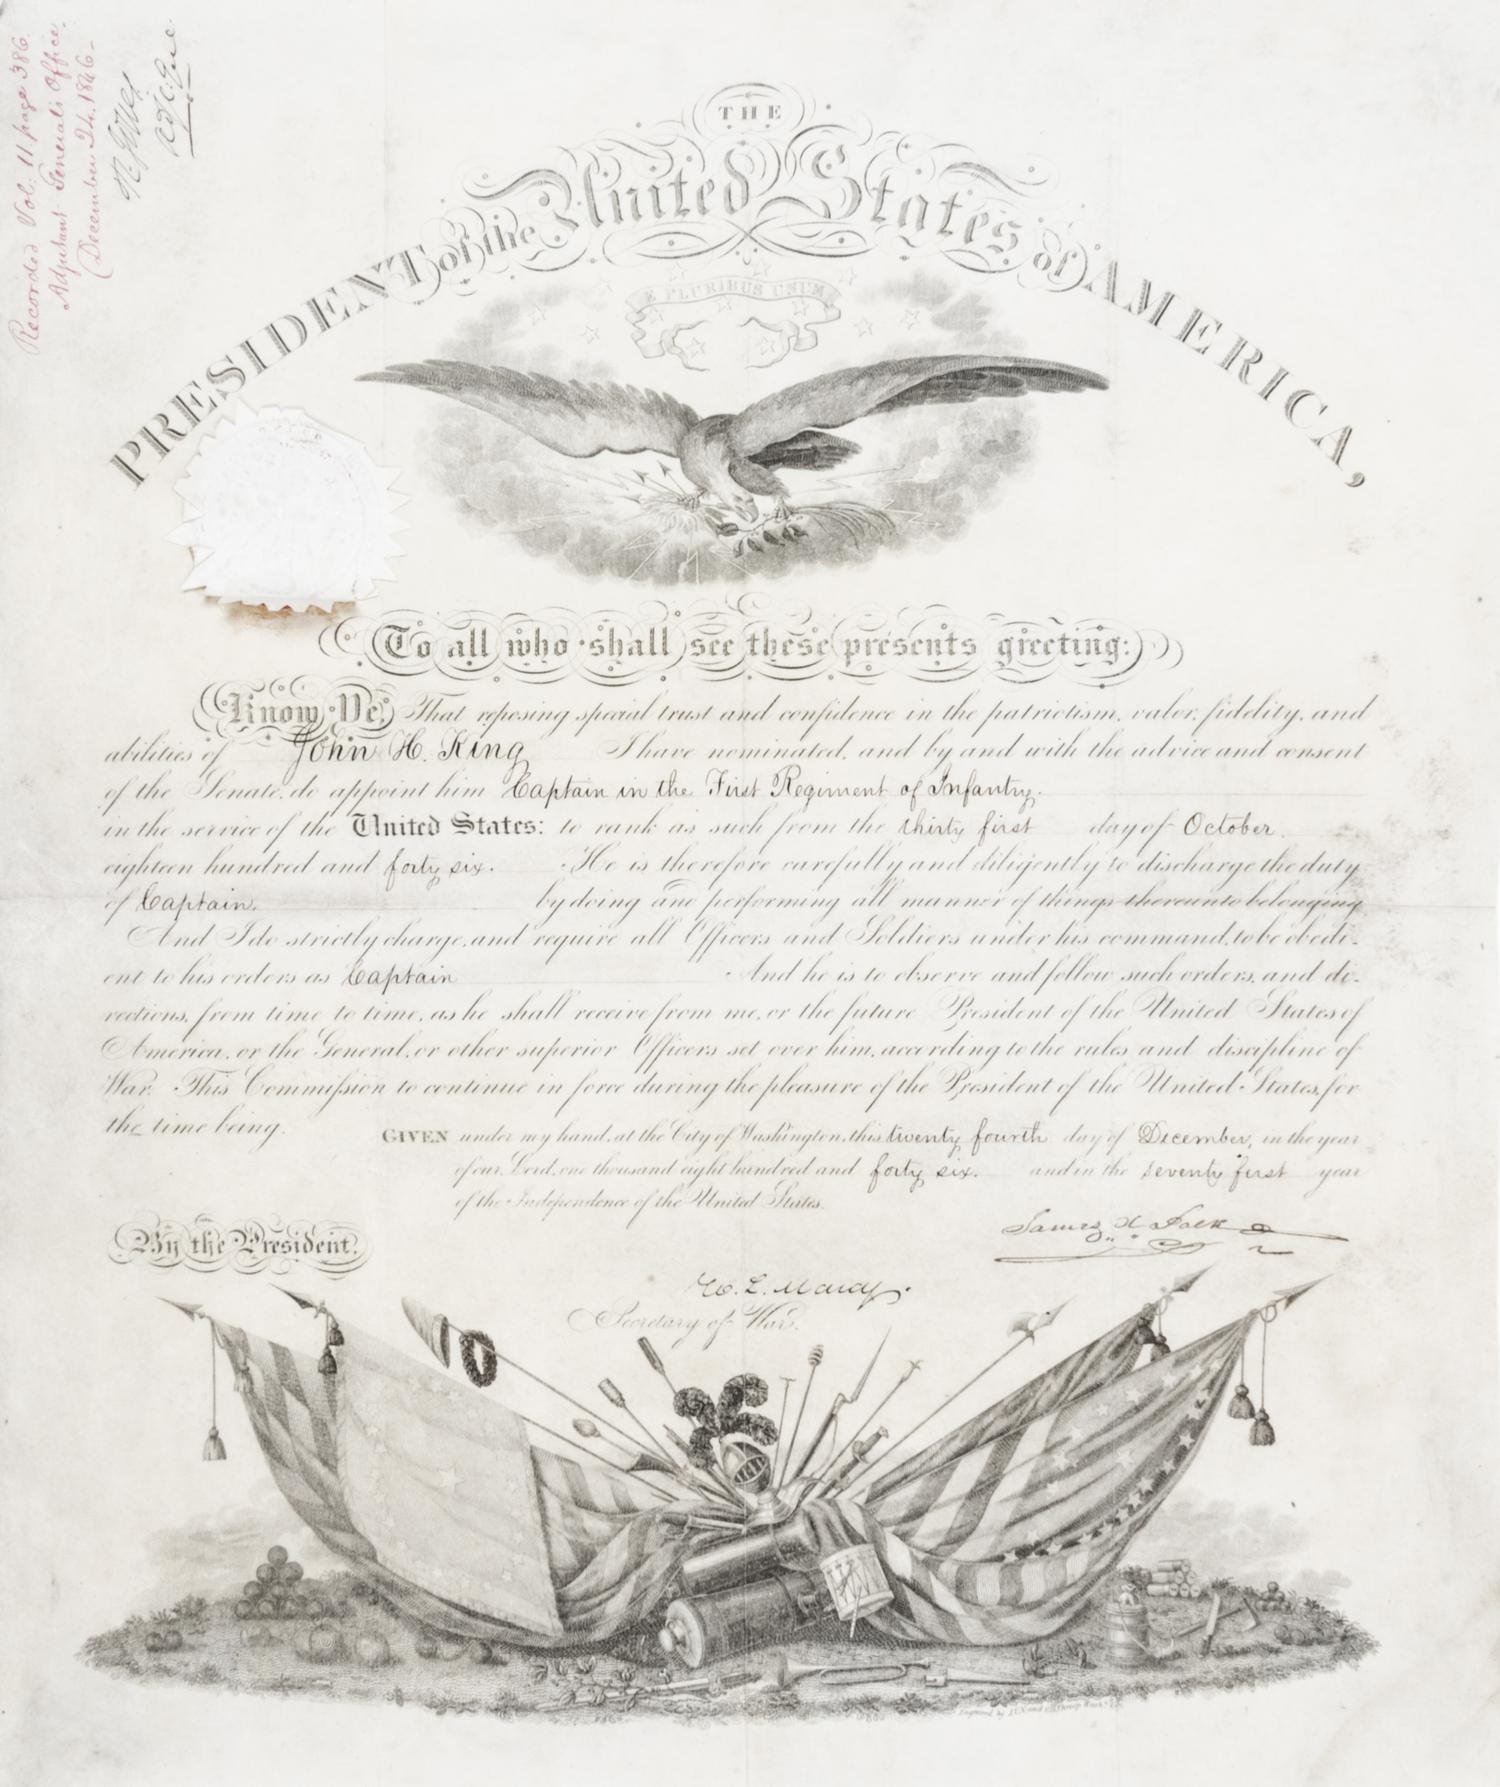 Recorded Vol: 11 page 386.
Adjutant General's Office.
December 24. 1846-
R. Jones
Adj. Gen.
THE
PRESIDENT of the United States of AMERICA,
E PLURIBUS UNUM
To all who shall see these presents greeting:
Know Ye, That reposing special trust and confidence in the patriotism, valor, fidelity, and
abilities of John H. King I have nominated, and by and with the advice and consent
of the Senate, do appoint him Captain in the First Regiment of Infantry.
in the service of the United States: to rank as such from the thirty first day of October.
eighteen hundred and forty six. He is therefore carefully and diligently to discharge the duty
of Captain. by doing and performing all manner of things thereunto belonging
And I do strictly charge, and require all Officers and Soldiers under his command, to be obedi-
ent to his orders as Captain And he is to observe and follow such orders, and di-
rections, from time to time, as he shall receive from me, or the future President of the United States of
America, or the General, or other superior Officers set over him, according to the rules and discipline of
War. This Commission to continue in force during the pleasure of the President of the United States, for
the time being.
GIVEN under my hand, at the City of Washington, this twenty fourth day of December, in the year
of our Lord, one thousand eight hundred and forty six. and in the seventy first year
of the Independence of the United States.
James K Polk
By the President.
W. L. Marcy.
Secretary of War.
Engraved by